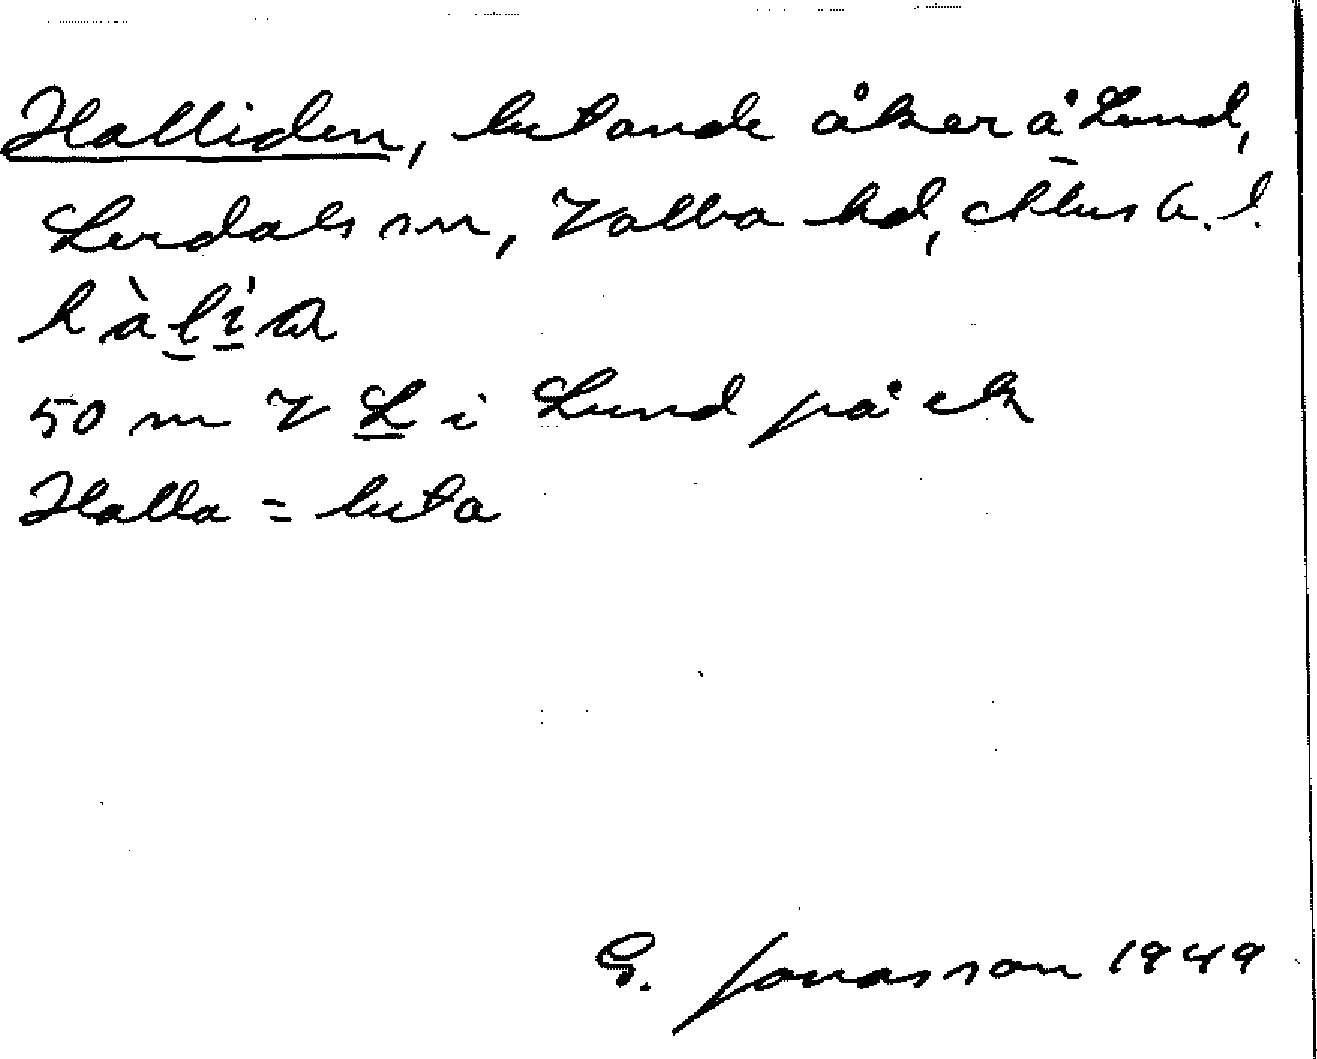 Halliden, lutande åker å Lund,
Lerdals sn, Valbo hd, Älvsb. l.
hàlia
50 m V L i Lund på ek
Halla = luta
G. Jonasson 1949